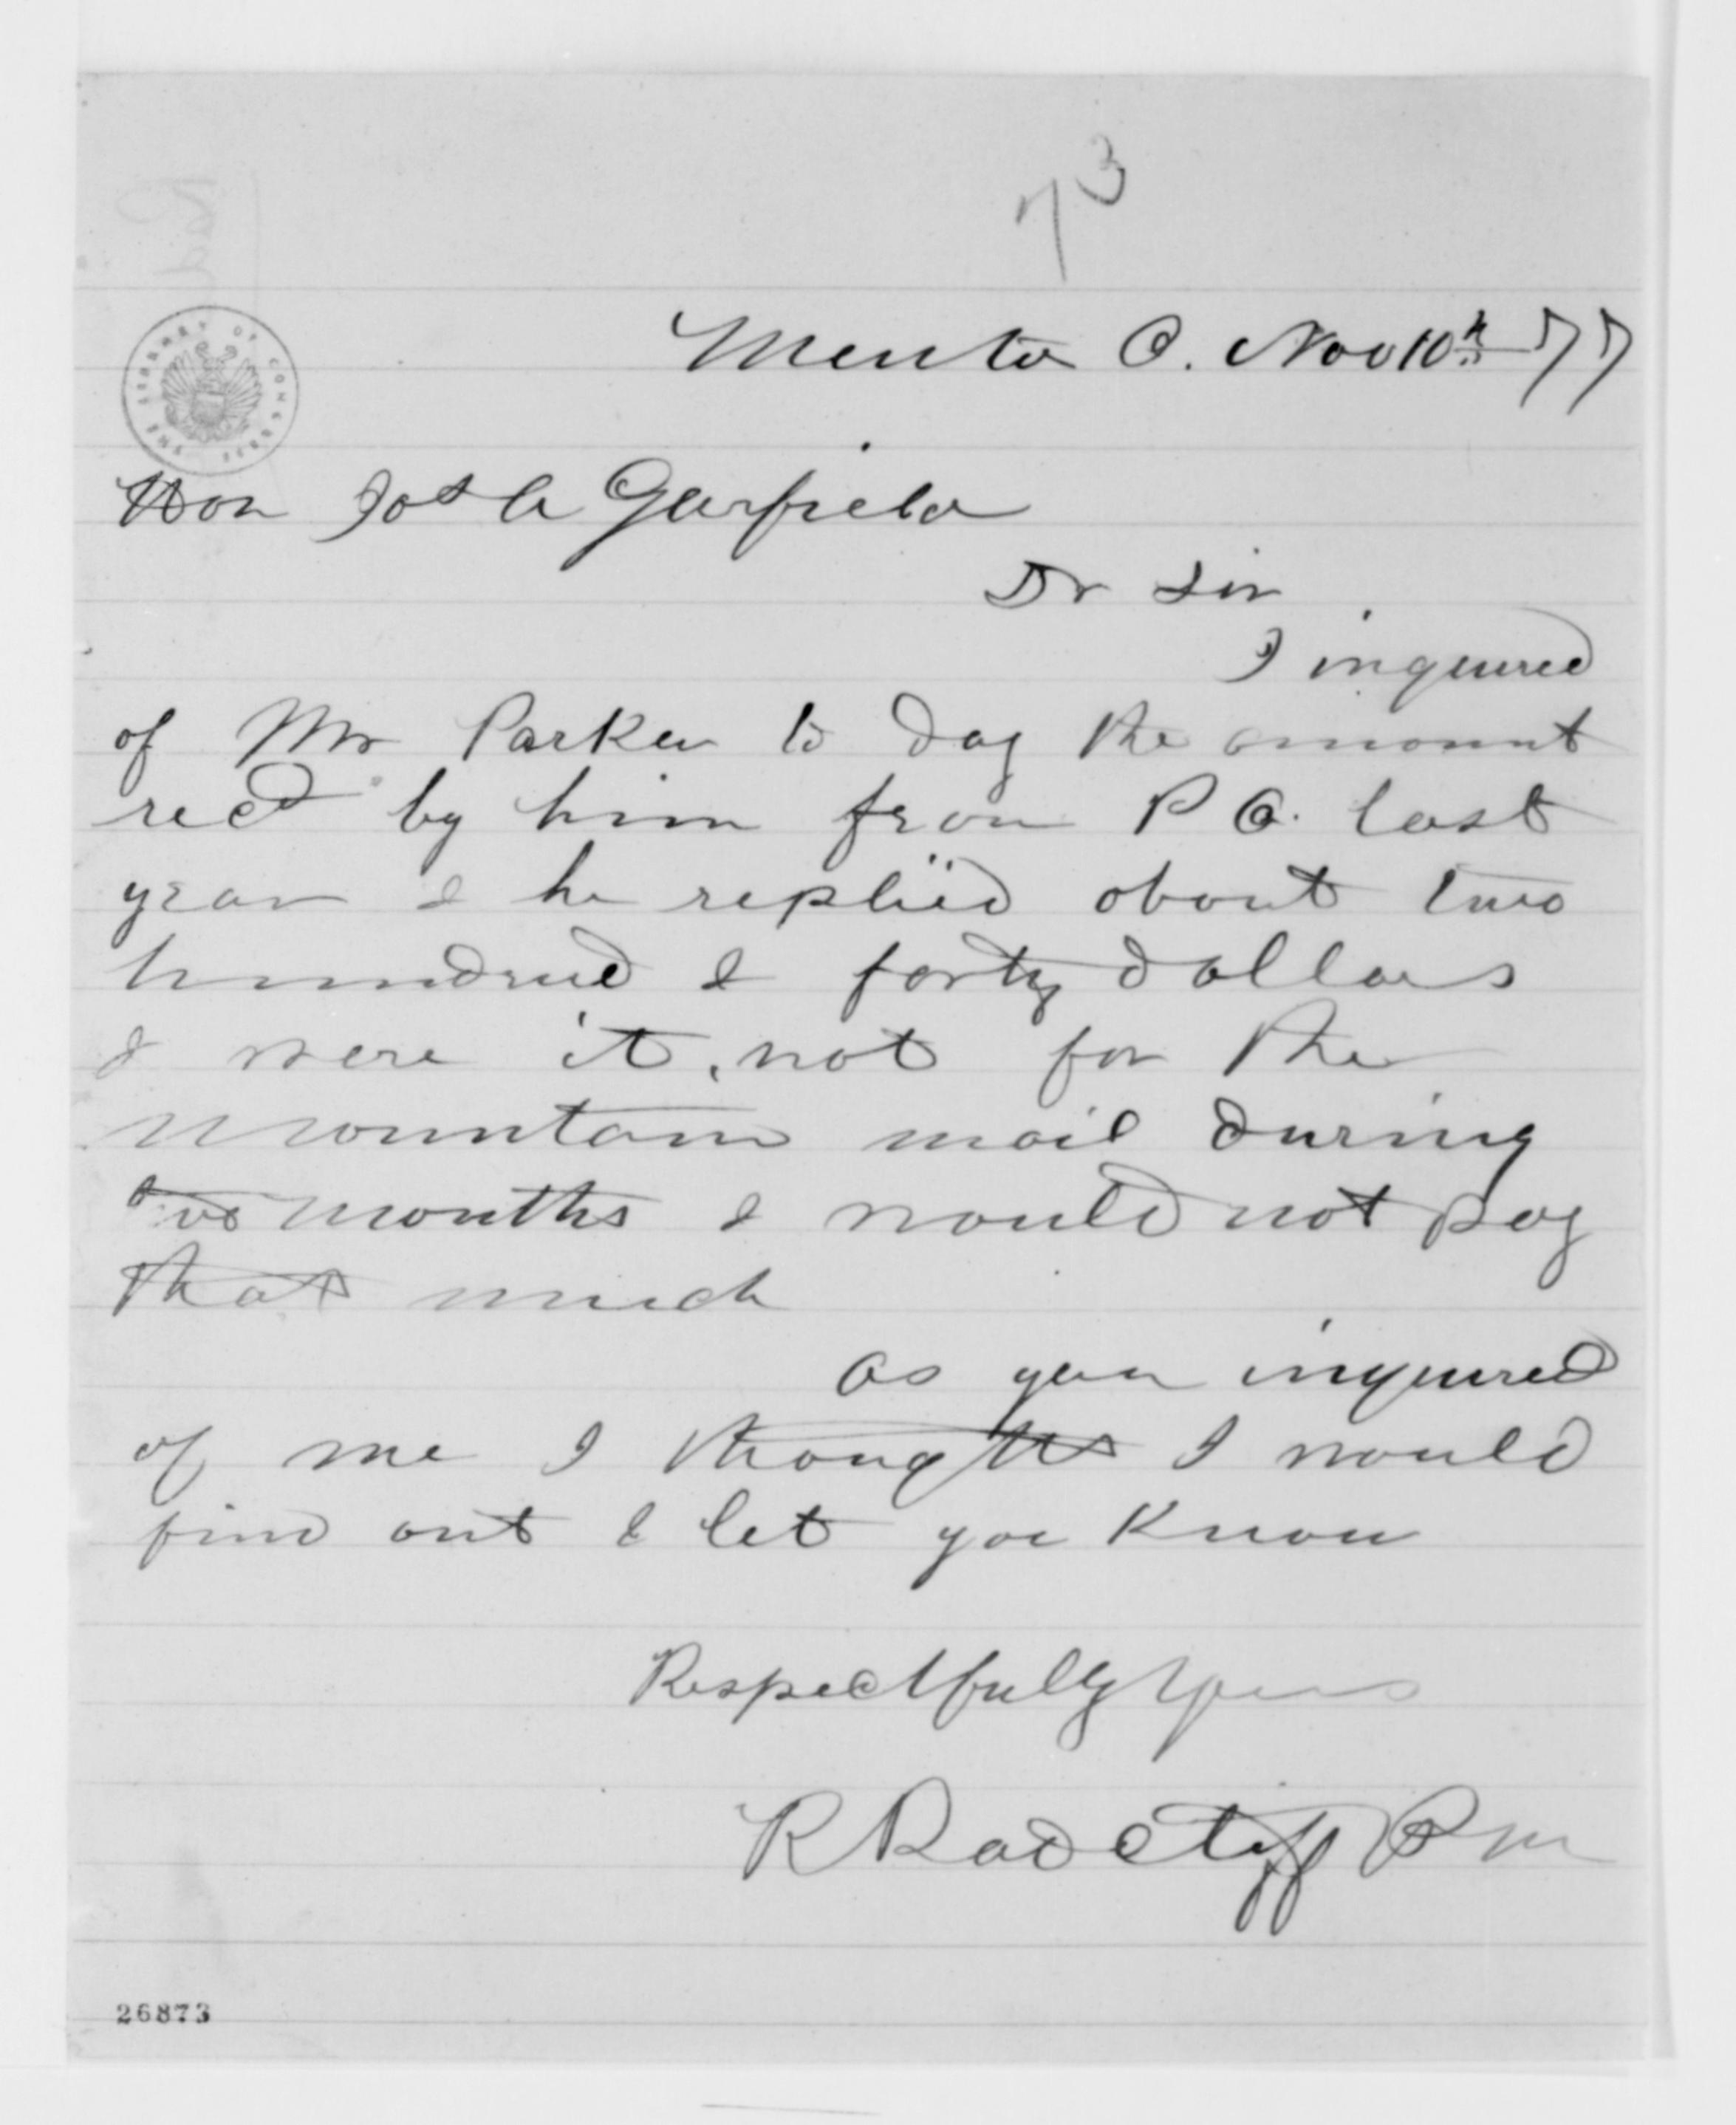 73
Mentor O. Nov 10th 77
THE LIBRARY OF CONGRESS
Hon Jas A Garfield
Dr Sir
I inquired
of Mr Parker to day the amount
recd by him from P O. last
year & he replied about two
hundred & forty dollars
& were it not for the
mountain mail during
months & would not pay
that much
as you inquired
of me I thought I would
find out & let you know
Respectfully Yours
R Radcliff P m
26873